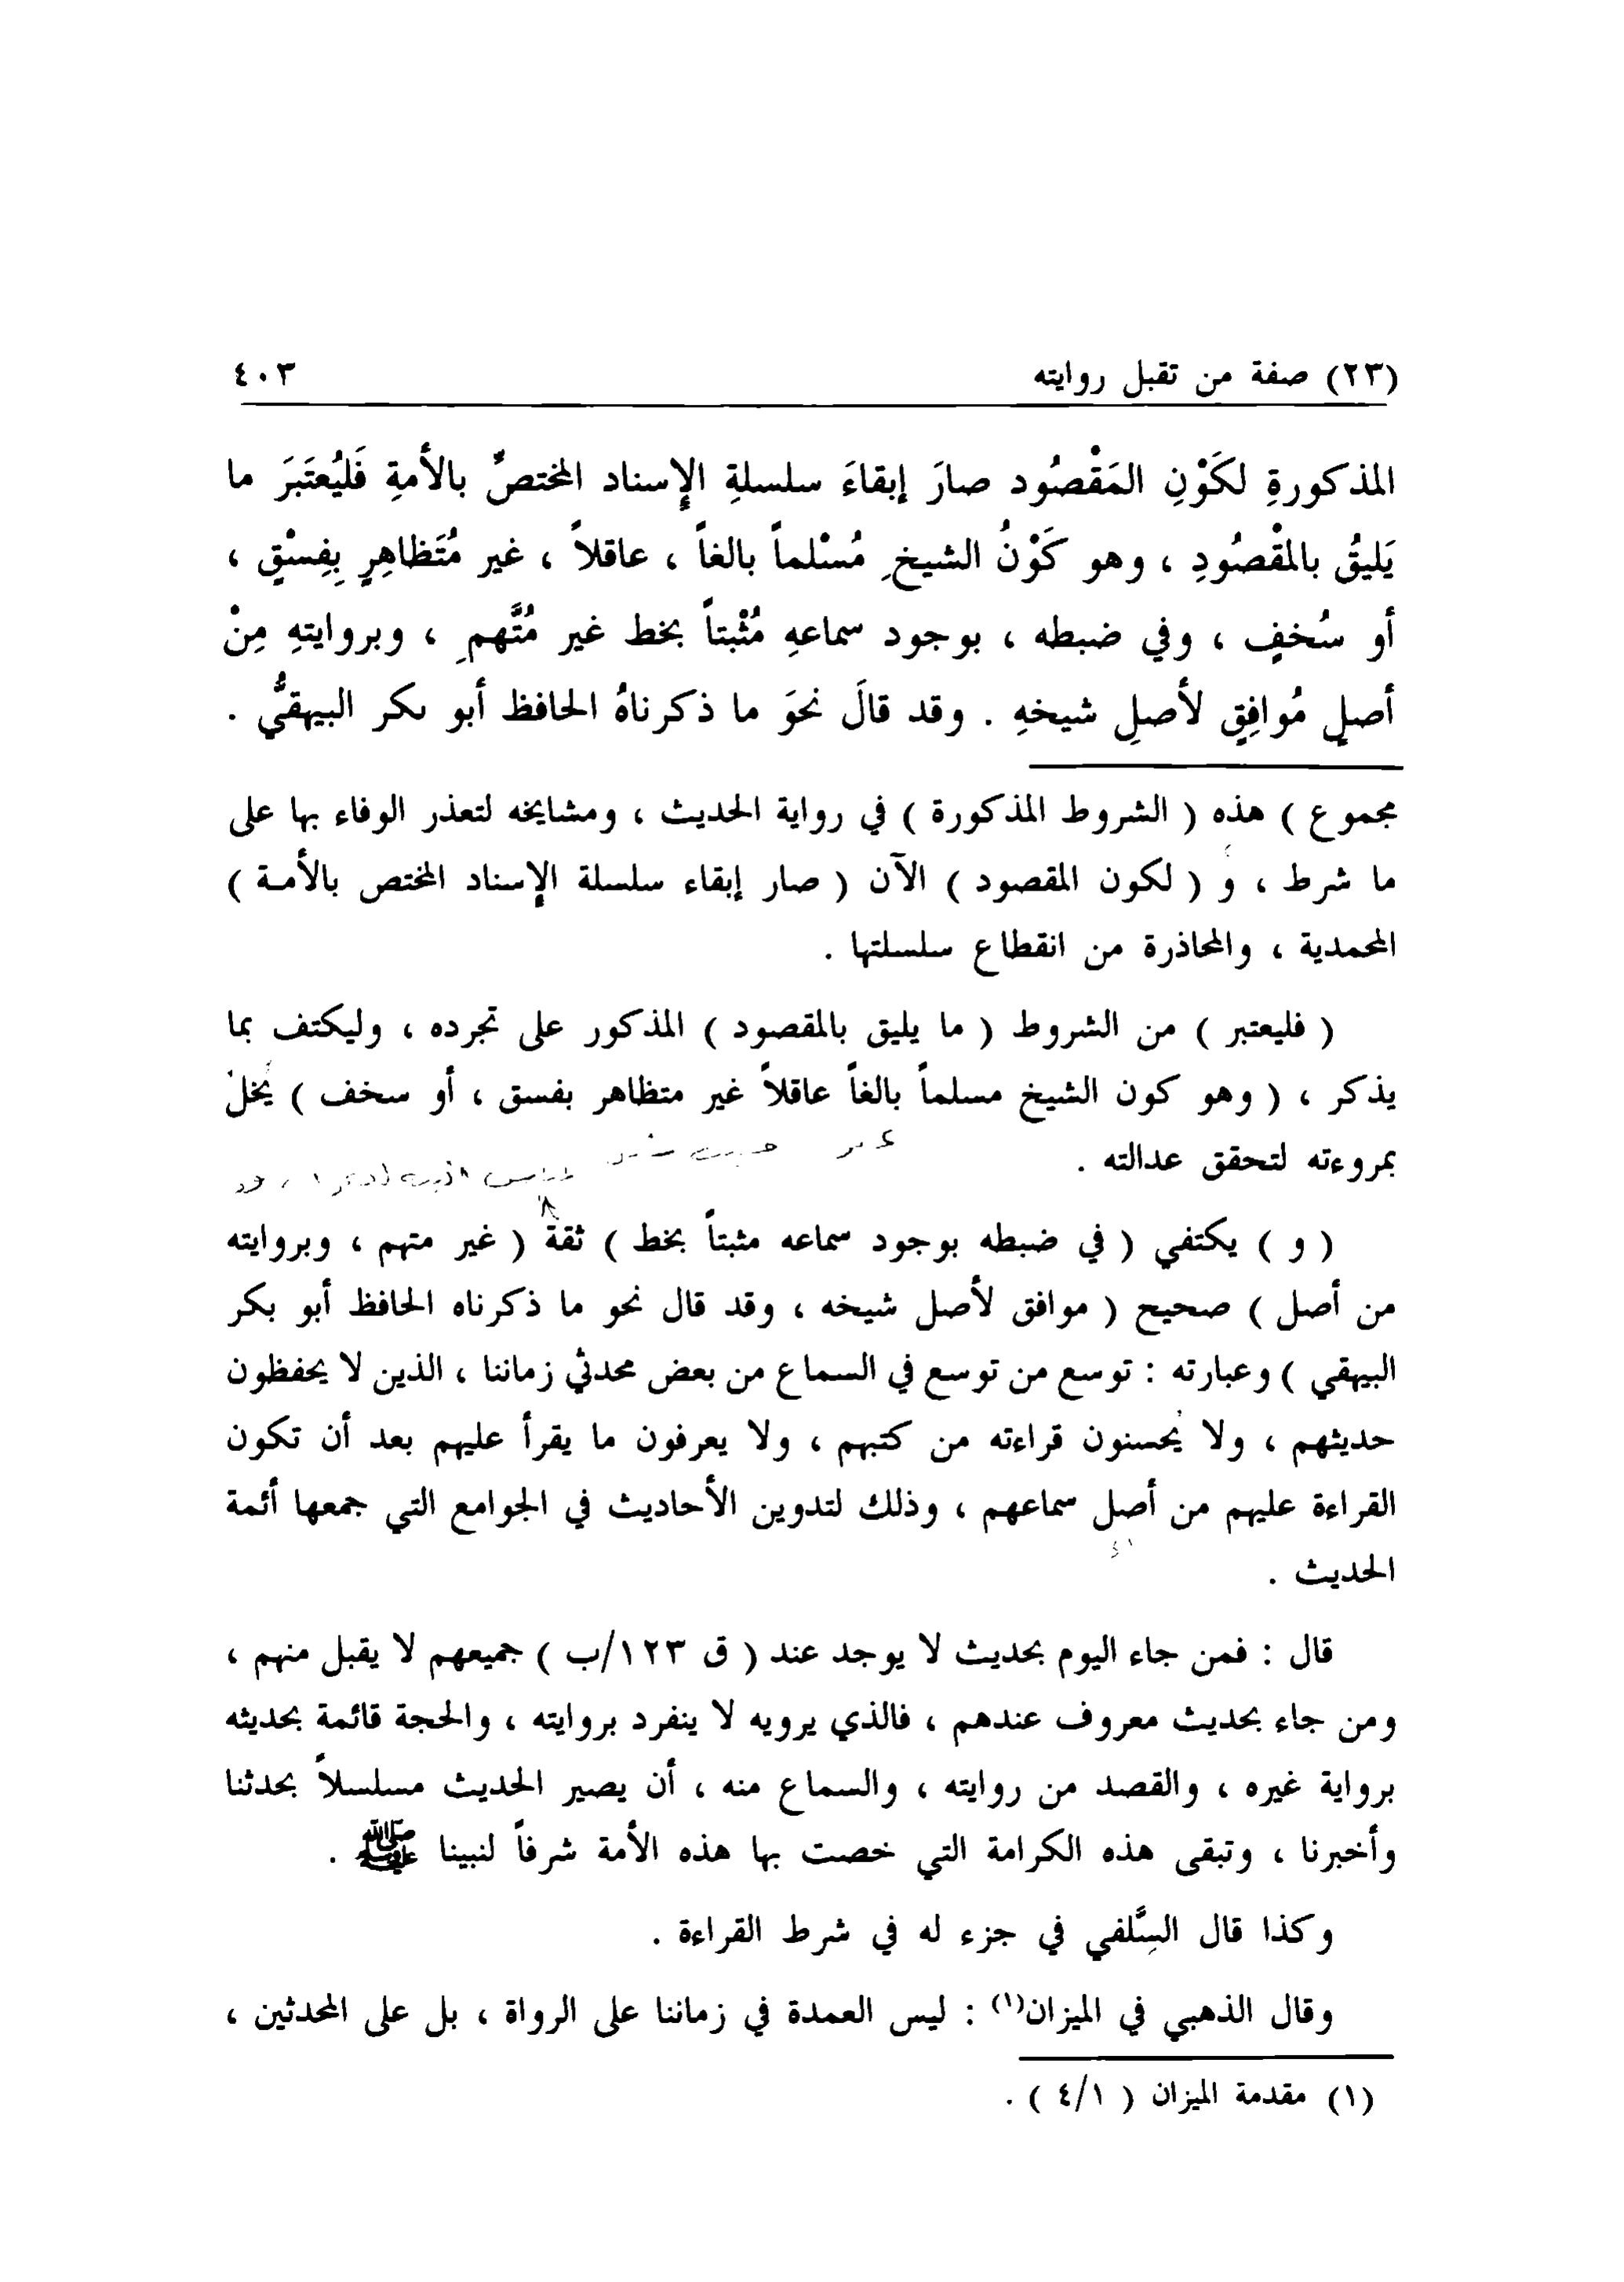 (٢٣) صفة من تقبل روايته ٤٠٣
المذكورةِ لكَوْنِ المَقْصُود صارَ إبقاءَ سلسلةِ الإِسناد المختصِّ بالأمةِ فَليُعتَبرَ ما
يَليقُ بالمقْصُودِ ، وهو كَوْنُ الشيخِ مُسْلماً بالغاً ، عاقلاً ، غير مُتَظاهِرٍ بِفِسْقٍ ،
أو سُخفٍ ، وفي ضبطه ، بوجود سماعهِ مُثْبتاً بخط غير مُتَّهمٍ ، وبروايتهِ مِنْ
أصلٍ مُوافِقٍ لأصلِ شيخهِ . وقد قالَ نحوَ ما ذكرناهُ الحافظ أبو بكر البيهقيُّ .
مجموع ) هذه ( الشروط المذكورة ) في رواية الحديث ، ومشايخه لتعذر الوفاء بها على
ما شرط ، و ( لكون المقصود ) الآن ( صار إبقاء سلسلة الإِسناد المختص بالأمـة )
المحمدية ، والمحاذرة من انقطاع سلسلتها .
( فليعتبر ) من الشروط ( ما يليق بالمقصود ) المذكور على تجرده ، وليكتف بما
يذكر ، ( وهو كون الشيخ مسلماً بالغاً عاقلاً غير متظاهر بفسق ، أو سخف ) يُخل
بمروءته لتحقق عدالته .
( و ) يكتفي ( في ضبطه بوجود سماعه مثبتاً بخط ) ثقة ( غير متهم ، وبروايته
من أصل ) صحيح ( موافق لأصل شيخه ، وقد قال نحو ما ذكرناه الحافظ أبو بكر
البيهقي ) وعبارته : توسع من توسع في السماع من بعض محدثي زماننا ، الذين لا يحفظون
حديثهم ، ولا يُحسنون قراءته من كتبهم ، ولا يعرفون ما يقرأ عليهم بعد أن تكون
القراءة عليهم من أصل سماعهم ، وذلك لتدوين الأحاديث في الجوامع التي جمعها أئمة
الحديث .
قال : فمن جاء اليوم بحديث لا يوجد عند ( ق ١٢٣/ب ) جميعهم لا يقبل منهم ،
ومن جاء بحديث معروف عندهم ، فالذي يرويه لا ينفرد بروايته ، والحجة قائمة بحديثه
برواية غيره ، والقصد من روايته ، والسماع منه ، أن يصير الحديث مسلسلاً بحدثنا
وأخبرنا ، وتبقى هذه الكرامة التي خصت بها هذه الأمة شرفاً لنبينا ﷺ .
وكذا قال السِّلفي في جزء له في شرط القراءة .
وقال الذهبي في الميزان(١) : ليس العمدة في زماننا على الرواة ، بل على المحدثين ،
(١) مقدمة الميزان ( ٤/١ ) .